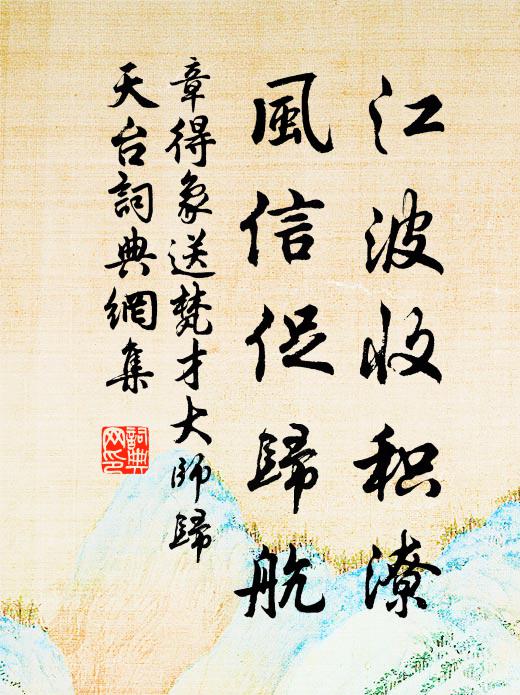 江波收积潦
風信促歸航
章得象送梵才大師歸
天台詞典網集
詞典
网印